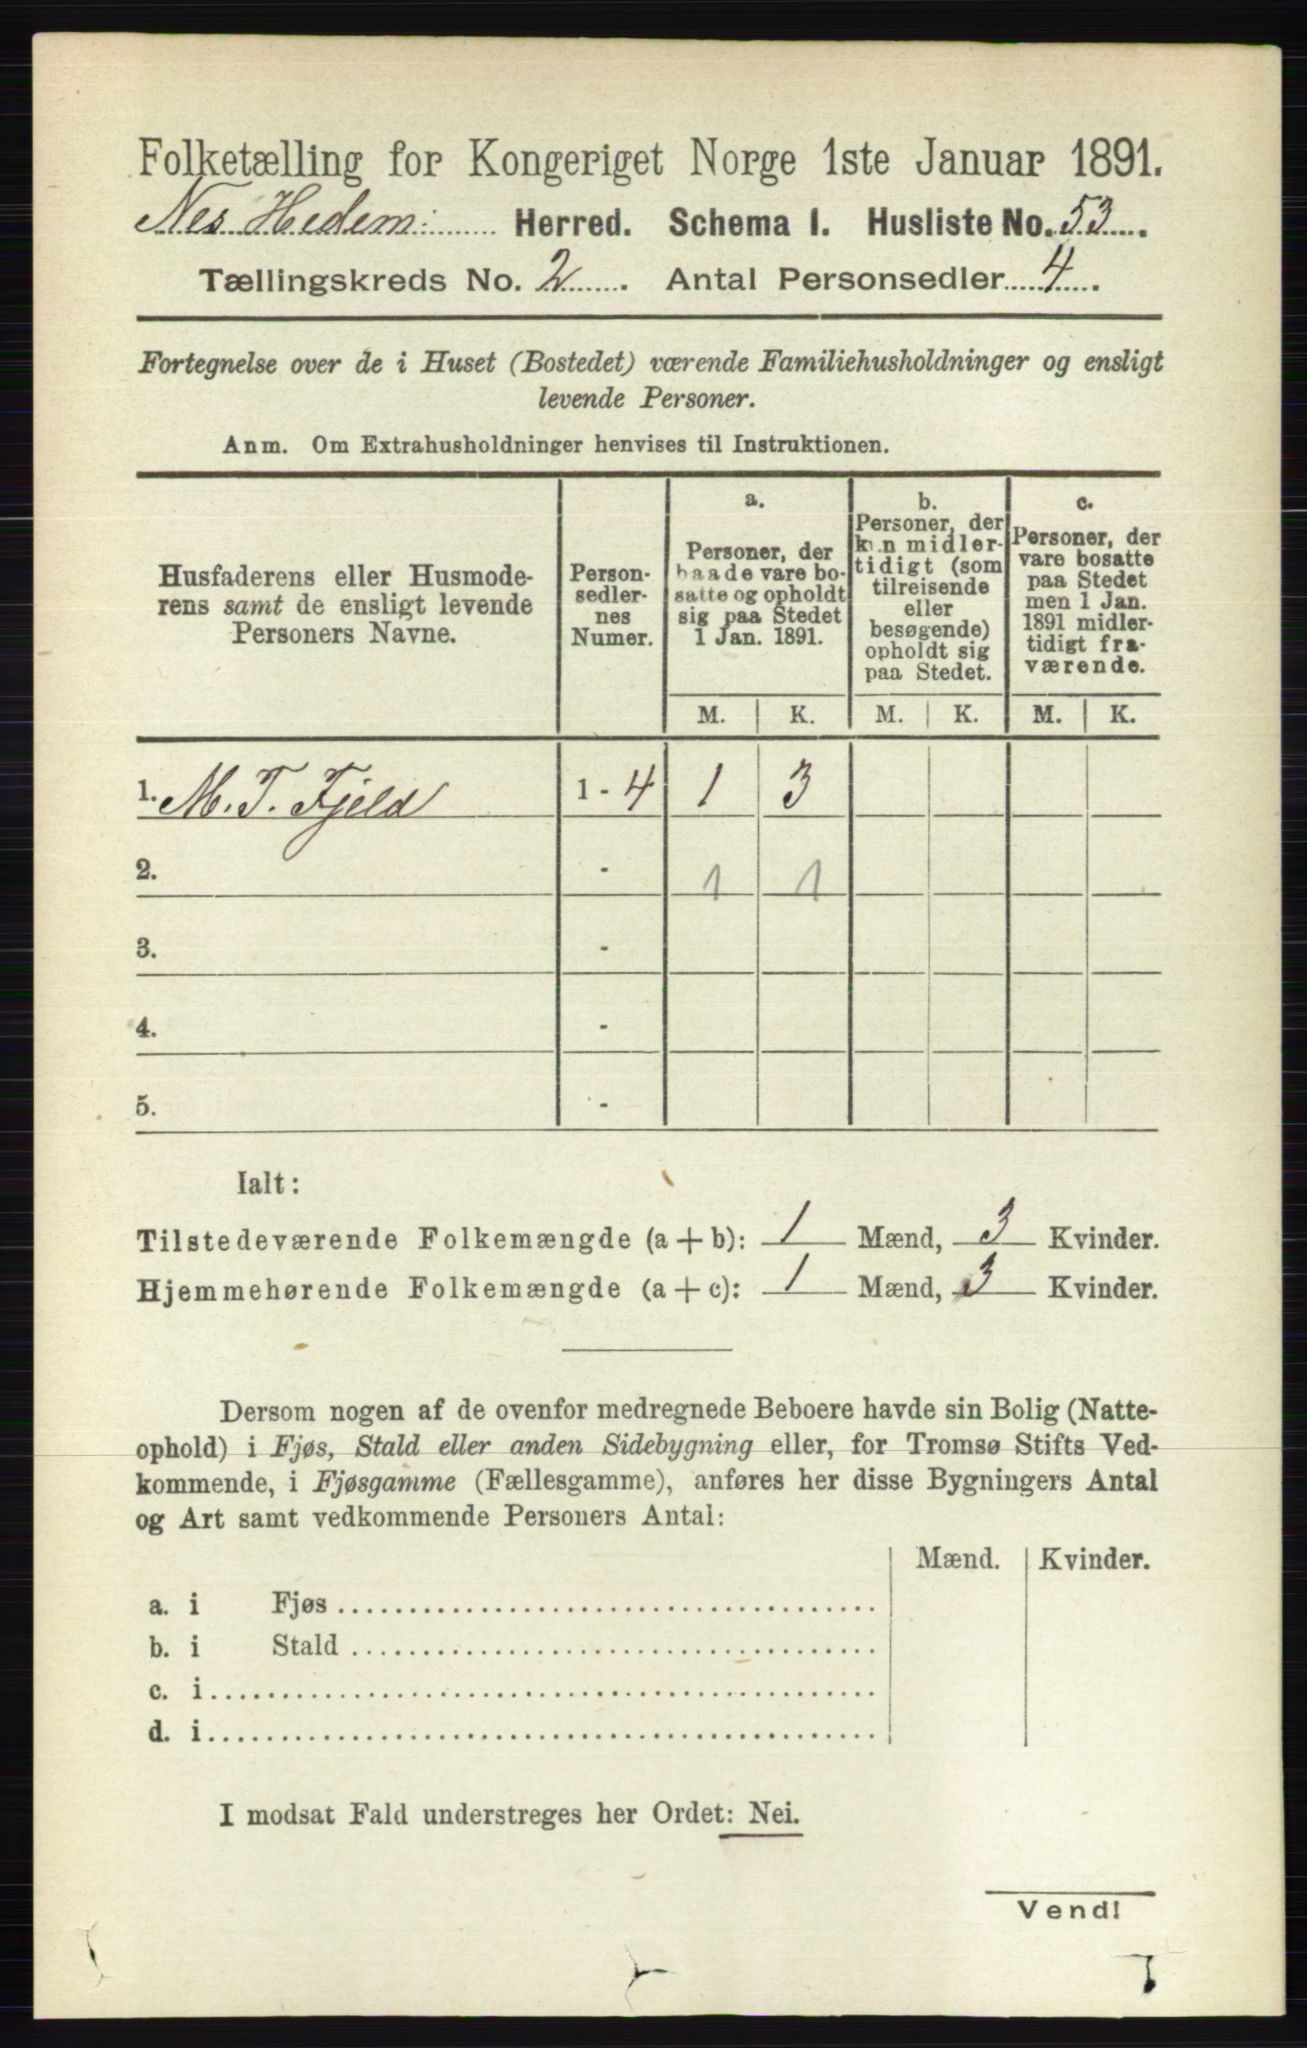 Folketælling for Kongeriget Norge 1ste Januar 1891.
Nes Hedem: Herred. Schema I. Husliste No. 53.
Tællingskreds No. 2. Antal Personsedler 4.
Fortegnelse over de i Huset (Bostedet) værende Familiehusholdninger og ensligt
levende Personer.
Anm. Om Extrahusholdninger henvises til Instruktionen.
Husfaderens eller Husmode-
rens samt de ensligt levende
Personers Navne.
Person-
sedler-
nes
Numer.
a.
Personer, der
baade vare bo-
satte og opholdt
sig paa Stedet
1 Jan. 1891.
b.
Personer, der
kun midler-
tidigt (som
tilreisende
eller
besøgende)
opholdt sig
paa Stedet.
c.
Personer, der
vare bosatte
paa Stedet
men 1 Jan.
1891 midler-
tidigt fra-
værende.
M. K. M. K. M. K.
1. M. T. Fjeld 1 - 4 1 3
2. - 1 1
3. -
4. -
5. -
Ialt:
Tilstedeværende Folkemængde (a + b): 1 Mænd, 3 Kvinder.
Hjemmehørende Folkemængde (a + c): 1 Mænd, 3 Kvinder.
Dersom nogen af de ovenfor medregnede Beboere havde sin Bolig (Natte-
ophold) i Fjøs, Stald eller anden Sidebygning eller, for Tromsø Stifts Ved-
kommende, i Fjøsgamme (Fællesgamme), anføres her disse Bygningers Antal
og Art samt vedkommende Personers Antal:
Mænd. Kvinder.
a. i Fjøs
b. i Stald
c. i
d. i
I modsat Fald understreges her Ordet: Nei.
Vend!